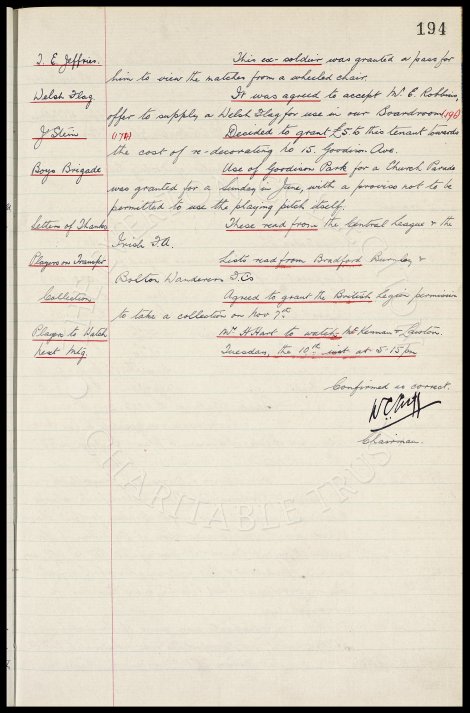 194
T. E. Jeffries. This ex-soldier was granted a pass for
him to view the matches from a wheeled chair.
Welsh Flag It was agreed to accept Mr E. Robbins,
offer to supply a Welsh Flag for use in our Boardroom (190)
J Stein (172) Decided to grant £5 to this tenant towards
the cost of re-decorating No 15. Goodison Ave.
Boys Brigade Use of Goodison Park for a Church Parade
was granted for a Sunday in June, with a proviso not to be
permitted to use the playing pitch itself.
Letters of Thanks These read from the Central League & the
Irish F.A.
Players on Transfer Lists read from Bradford Burnley &
Bolton Wanderers F.Cs
Collection Agreed to grant the British Legion permission
to take a collection on Nov 7th.
Player to Watch Mr H Hart to watch Mc & Lawton.
Next Mtg. Tuesday, the 10th inst at 5-15 pm
Confirmed as correct.
W C Cuff
Chairman.
CHARITABLE TRUST